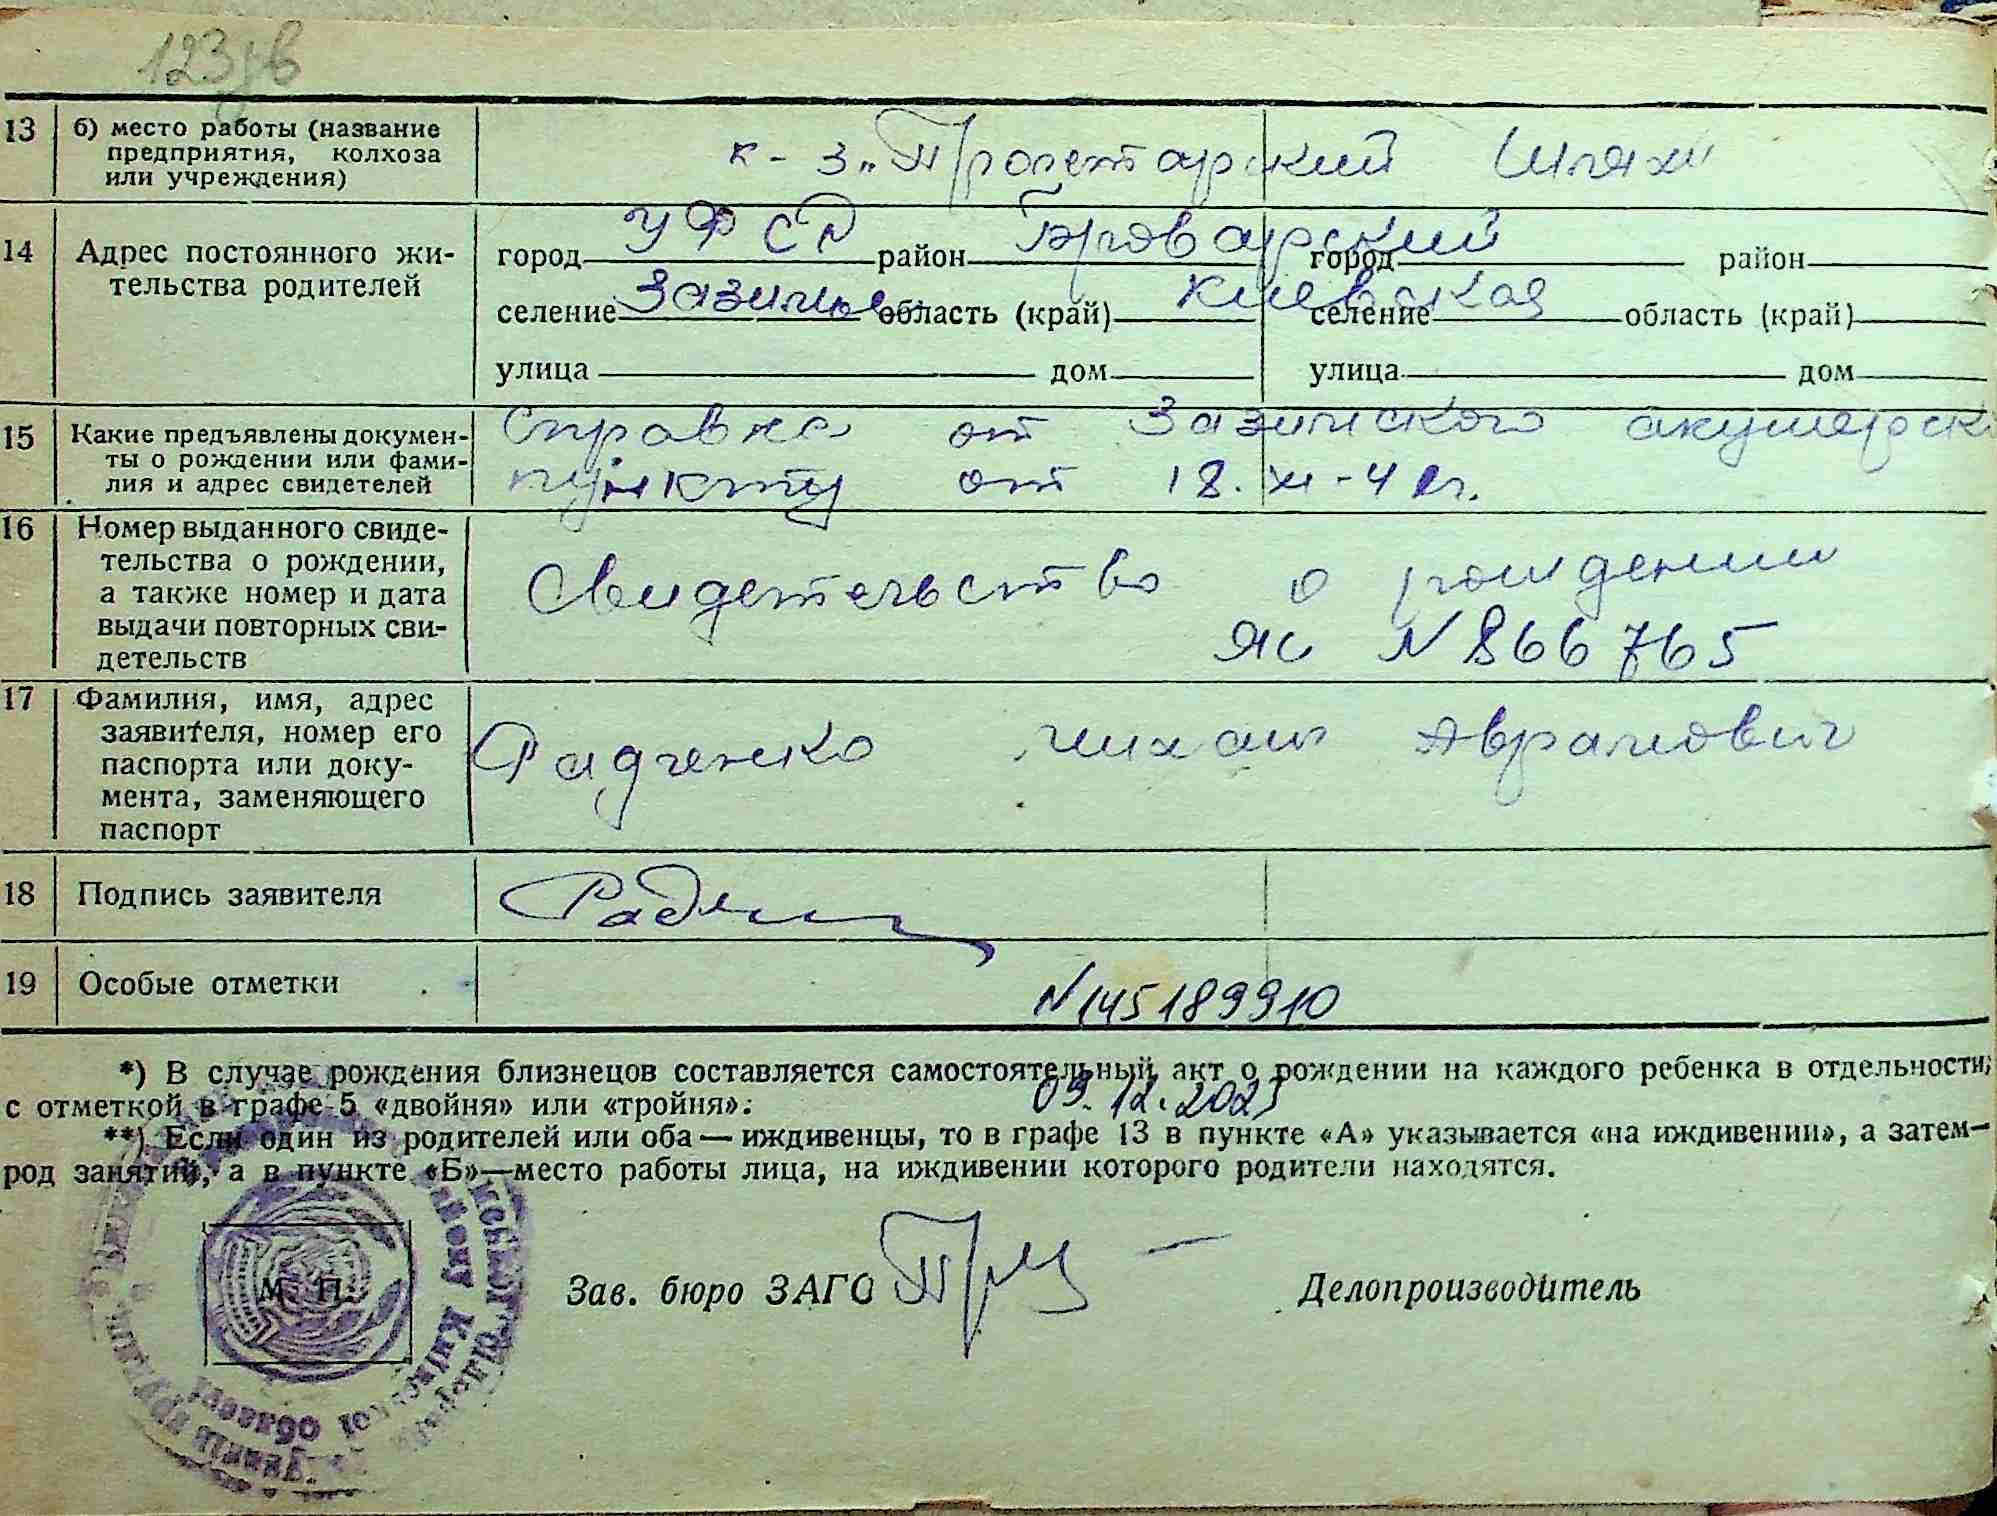 123зв
13 б) место работы (название предприятия, колхоза или учреждения) к-з „Пролетарский Шлях"
14 Адрес постоянного жительства родителей
город УФСР район Броварский город район
селение Зазимье область (край) Киевская селение область (край)
улица дом улица дом
15 Какие предъявлены документы о рождении или фамилия и адрес свидетелей
Справка от Зазимского акушерск
пункту от 18.
16 Номер выданного свидетельства о рождении, а также номер и дата выдачи повторных свидетельств
Свидетельство о рождении
ЯС N 866765
17 Фамилия, имя, адрес заявителя, номер его паспорта или документа, заменяющего паспорт
Радченко Михаил Аврамович
18 Подпись заявителя
19 Особые отметки
N 145189910
*) В случае рождения близнецов составляется самостоятельный акт о рождении на каждого ребенка в отдельности,
с отметкой в графе 5 «двойня» или «тройня».
09.12.2023
**) Если один из родителей или оба — иждивенцы, то в графе 13 в пункте «А» указывается «на иждивении», а затем—
род занятий, а в пункте «Б»—место работы лица, на иждивении которого родители находятся.
М. П.
району Київської області
Зав. бюро ЗАГС
Делопроизводитель